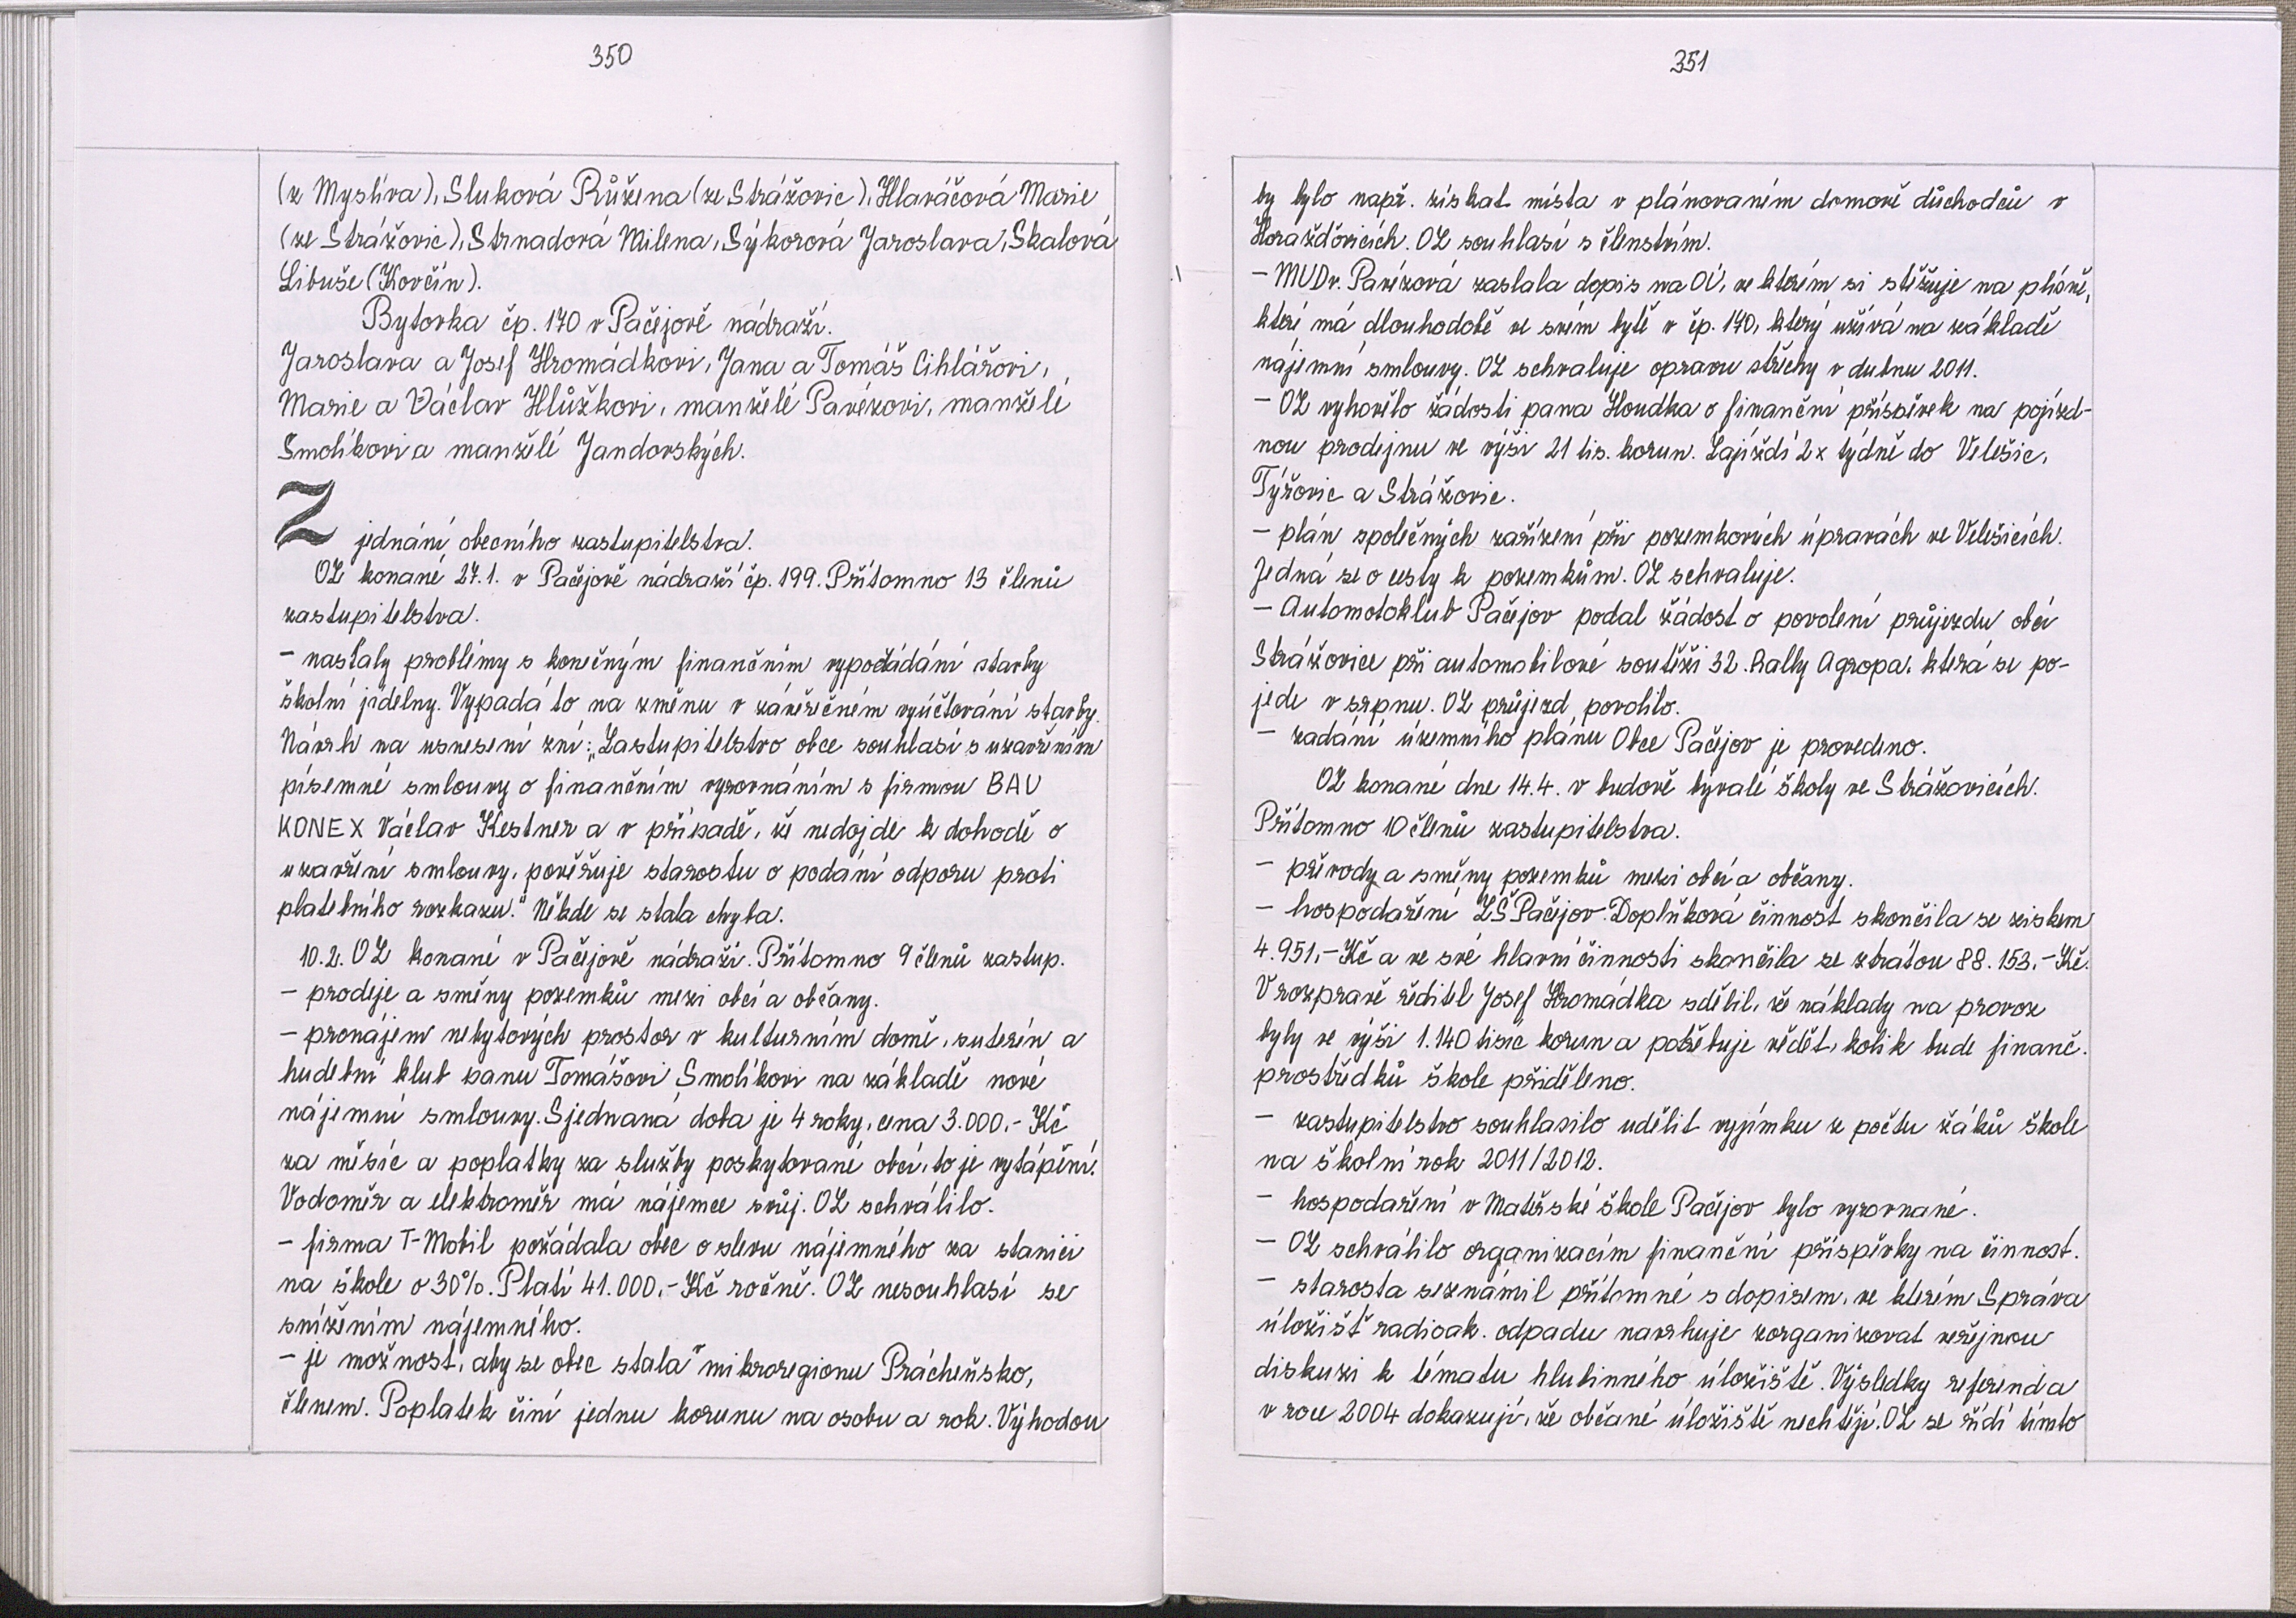 350
(z Myslíva), Sluková Růžena (ze Strážovic), Hlaváčová Marie
(ze Strážovic), Strnadová Milena, Sýkorová Jaroslava, Skalová
Libuše (Kovčín).
Bytovka čp. 170 v Pačejově nádraží.
Jaroslava a Josef Hromádkovi, Jana a Tomáš Cihlářovi,
Marie a Václav Hlůžkovi, manželé Pavézovi, manželé
Smolíkovi a manželé Jandovských.
Z jednání obecního zastupitelstva.
OZ konané 27.1. v Pačejově nádraží čp. 199. Přítomno 13 členů
zastupitelstva.
- nastaly problémy s konečným finančním vypořádání stavby
školní jídelny. Vypadá to na změnu v závěrečném vyúčtování stavby.
Návrh na usnesení zní: „Zastupitelstvo obce souhlasí s uzavřením
písemné smlouvy o finančním vyrovnáním s firmou BAU
KONEX Václav Kestner a v případě, že nedojde k dohodě o
uzavření smlouvy, pověřuje starostu o podání odporu proti
platebního rozkazu." Někde se stala chyba.
10.2. OZ konané v Pačejově nádraží. Přítomno 9 členů zastup.
- prodeje a směny pozemků mezi obcí a občany.
- pronájem nebytových prostor v kulturním domě, suterén a
hudební klub panu Tomášovi Smolíkovi na základě nové
nájemní smlouvy. Sjednaná doba je 4 roky, cena 3.000,- Kč
za měsíc a poplatky za služby poskytované obcí, to je vytápění.
Vodoměr a elektroměr má nájemce svůj. OZ schválilo.
- firma T-Mobil požádala obec o slevu nájemného za stanici
na škole o 30%. Platí 41.000,- Kč ročně. OZ nesouhlasí se
snížením nájemného.
- je možnost, aby se obec stala mikroregionu Prácheňsko,
členem. Poplatek činí jednu korunu na osobu a rok. Výhodou
351
by bylo např. získat místa v plánovaném domově důchodců v
Horažďovicích. OZ souhlasí s členstvím.
- MUDr. Pavézová zaslala dopis na OÚ, ve kterém si stěžuje na plísně,
které má dlouhodobě ve svém bytě v čp. 170, který užívá na základě
nájemní smlouvy. OZ schvaluje opravu střechy v dubnu 2011.
- OZ vyhovělo žádosti pana Houdka o finanční příspěvek na pojízd-
nou prodejnu ve výši 21 tis. korun. Zajíždí 2x týdně do Velešic,
Týřovic a Strážovic.
- plán společných zařízení při pozemkových úpravách ve Velešicích.
Jedná se o cesty k pozemkům. OZ schvaluje.
- Automotoklub Pačejov podal žádost o povolení průjezdu obcí
Strážovice při automobilové soutěži 32. Rally Agropa, která se po-
jede v srpnu. OZ průjezd povolilo.
- zadání územního plánu Obce Pačejov je provedeno.
OZ konané dne 14.4. v budově bývalé školy ve Strážovicích.
Přítomno 10 členů zastupitelstva.
- převody a směny pozemků mezi obcí a občany.
- hospodaření ZŠ Pačejov. Doplňková činnost skončila se ziskem
4.951,- Kč a ve své hlavní činnosti skončila se ztrátou 88.153,- Kč.
V rozpravě ředitel Josef Hromádka sdělil, že náklady na provoz
byly ve výši 1.140 tisíc korun a potřebuje vědět, kolik bude finanč.
prostředků škole přiděleno.
- zastupitelstvo souhlasilo udělit vyjímku z počtu žáků škole
na školní rok 2011/2012.
- hospodaření v Mateřské škole Pačejov bylo vyrovnané.
- OZ schválilo organizacím finanční příspěvky na činnost.
- starosta seznámil přítomné s dopisem, ve kterém Správa
úložišť radioak. odpadu navrhuje zorganizovat veřejnou
diskuzi k tématu hlubinného úložiště. Výsledky referenda
v roce 2004 dokazují, že občané úložiště nechtějí. OZ se řídí tímto